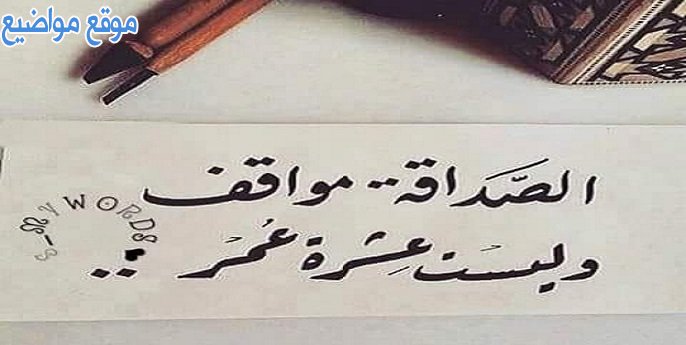 موقع مواضيع
الصَّداقة.. مواقف
وليسَت عِشرة عُمرْ ..
MYWORDS